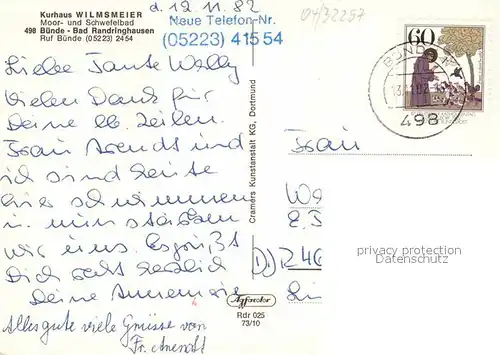 Kurhaus WILMSMEIER
Moor- und Schwefelbad
498 Bünde - Bad Randringhausen
Ruf Bünde (05223) 2454
d. 12.11.82
Neue Telefon-Nr.
(05223) 4 15 54
04/32257
60
BÜNDE
498
Liebe Tante Wally
Vielen Dank für
Deine lb. Zeilen.
Frau Arendt und
ich sind heute
hier schwimmen
u. nun stärken
wir uns. Es grüßt
Dich recht herzlich
Deine Annemarie
Alles gute viele Grüsse von
Fr. Arendt
Cramers Kunstanstalt KG, Dortmund
Agfacolor
Rdr 025
73/10
Frau
privacy protection
Datenschutz